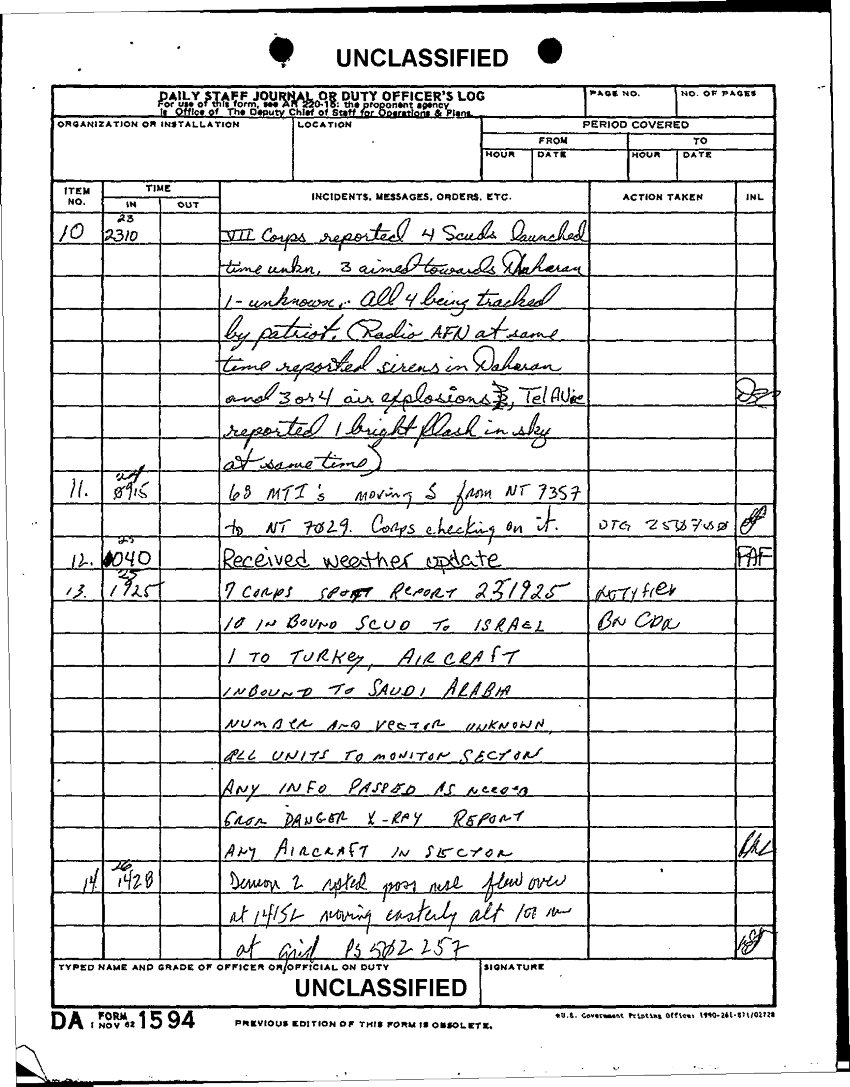 UNCLASSIFIED
DAILY STAFF JOURNAL OR DUTY OFFICER'S LOG
For use of this form, see AR 220-15; the proponent agency
is Office of The Deputy Chief of Staff for Operations & Plans.
PAGE NO.
NO. OF PAGES
ORGANIZATION OR INSTALLATION
LOCATION
PERIOD COVERED
FROM
TO
HOUR
DATE
HOUR
DATE
ITEM NO.
TIME
IN
OUT
INCIDENTS, MESSAGES, ORDERS, ETC.
ACTION TAKEN
INL
23
10 2310 VII Corps reported 4 Scuds launched
time unkn, 3 aimed towards Dhaharan
1-unknown. All 4 being tracked
by patriot. (Radio AFN at same
time reported sirens in Daharan
and 3 or 4 air explosions, Tel Avie
reported 1 bright flash in sky
at same time)
24
11. 0915 68 MTI's moving S from NT 7357
to NT 7029. Corps checking on it. DTG 250700
25
12. 1040 Received weather update FAF
25
13. 1925 7 CORPS SPOT REPORT 251925 NOTIFIED
10 IN BOUND SCUD TO ISRAEL BN CDR
1 TO TURKEY, AIRCRAFT
INBOUND TO SAUDI ARABIA
NUMBER AND VECTOR UNKNOWN
ALL UNITS TO MONITOR SECTORS
ANY INFO PASSED AS NEEDED
FROM DANGER X-RAY REPORT
ANY AIRCRAFT IN SECTOR
26
14. 1428 Demon 2 flew over
at 1415L moving easterly alt 100
at grid PS 502 257
TYPED NAME AND GRADE OF OFFICER OR OFFICIAL ON DUTY
SIGNATURE
UNCLASSIFIED
DA FORM 1 NOV 62 1594
PREVIOUS EDITION OF THIS FORM IS OBSOLETE.
*U.S. Government Printing Office: 1990-261-871/02728